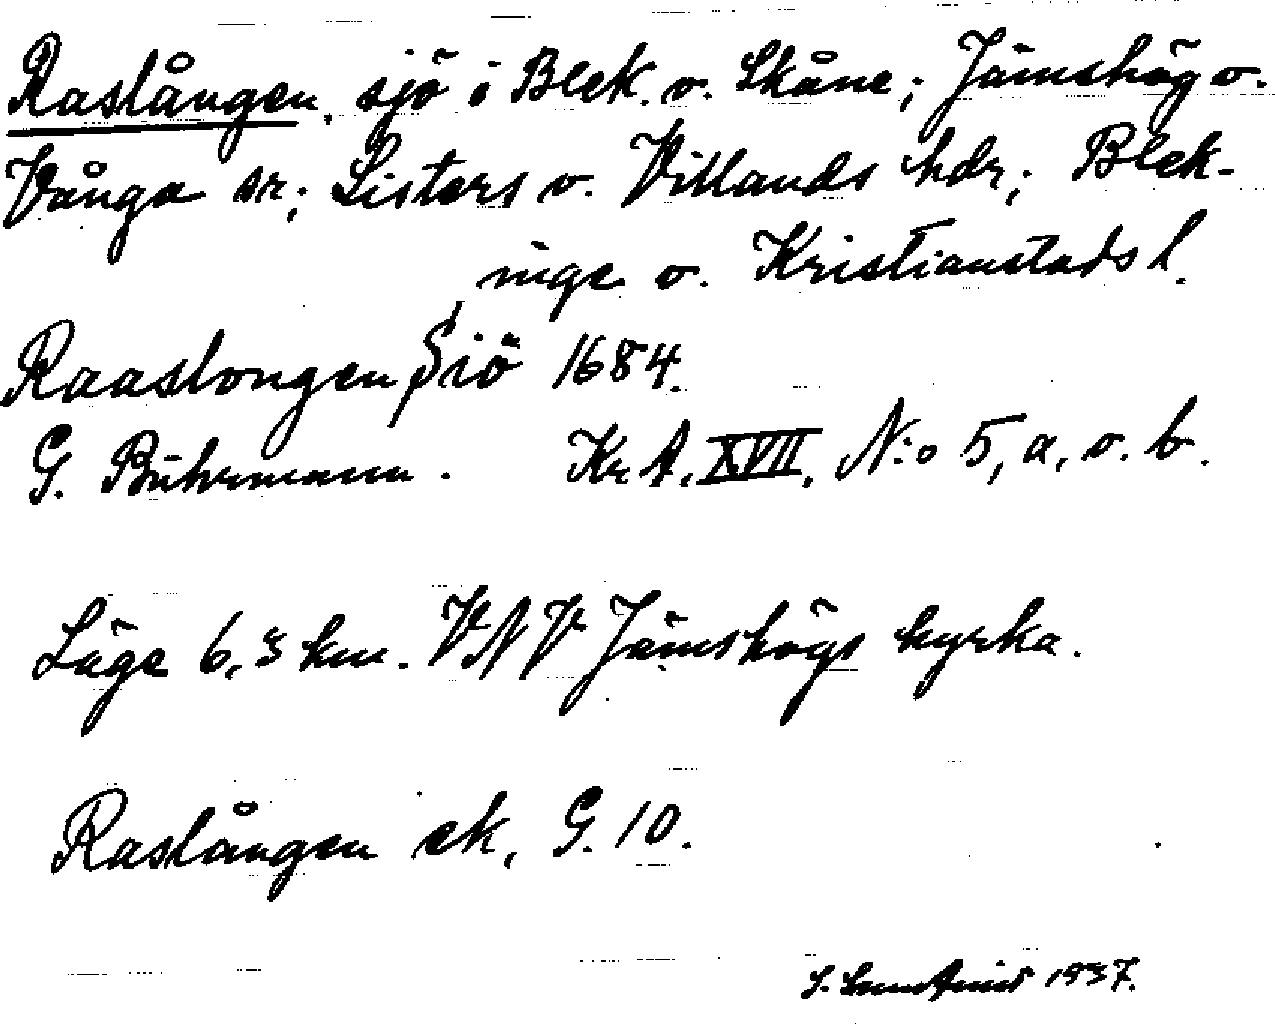 Raslången, sjö i Blek. o. Skåne; Jämshög o.
Vånga sr; Listers o. Villands hdr; Blek-
inge o. Kristianstads l.
Raaslongen Siö 1684.
G. Buhrmann. Kr. A. XVII, N:o 5, a, o. b.
Läge 6,3 km. VNV Jämshögs kyrka.
Raslången ek, G. 10.
1937.